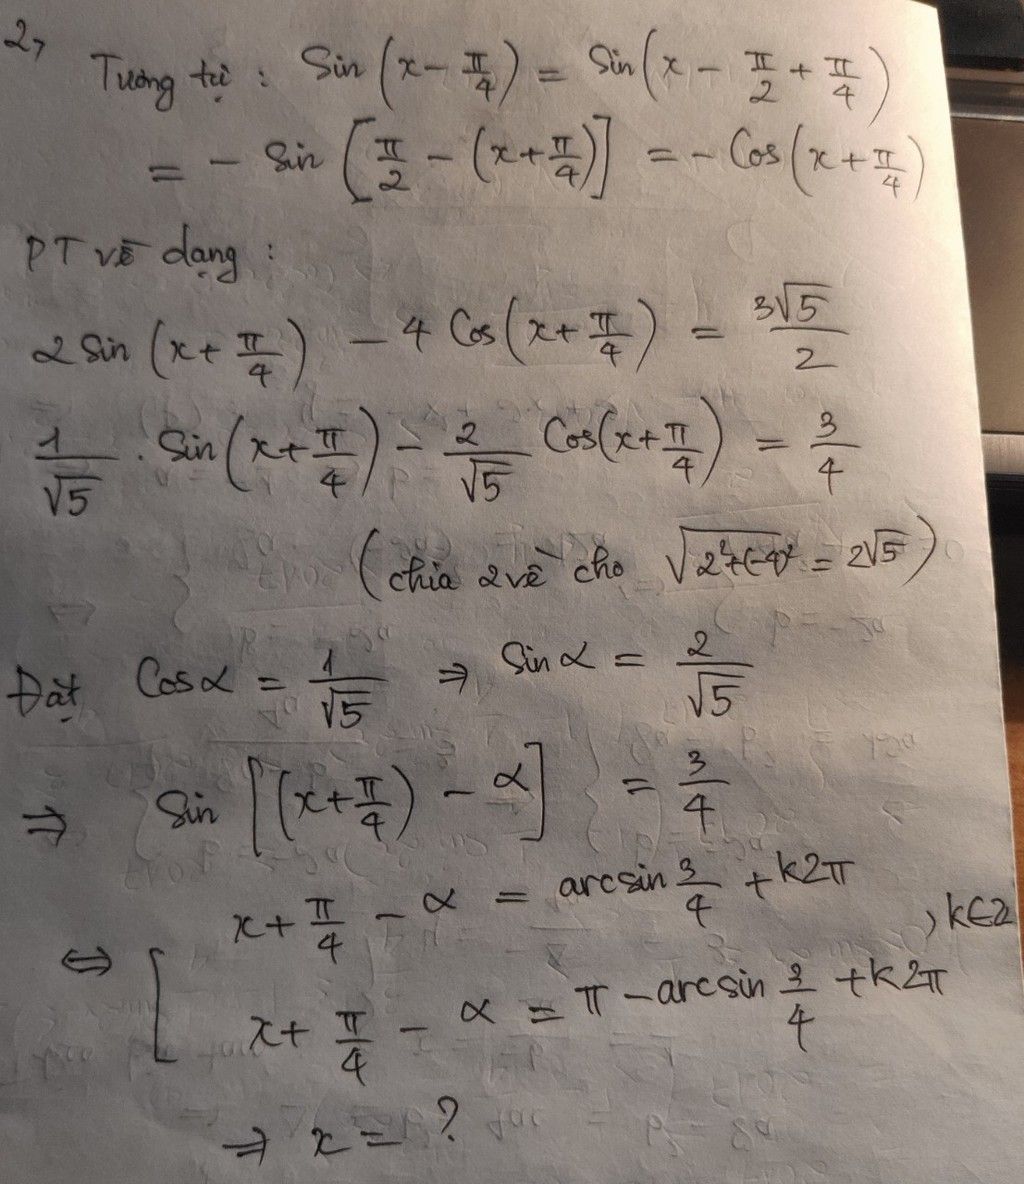 2,
Tương tự : Sin (x - π/4) = Sin (x - π/2 + π/4)
= - Sin [π/2 - (x + π/4)] = - Cos (x + π/4)
PT về dạng :
2 Sin (x + π/4) - 4 Cos (x + π/4) = 3√5/2
1/√5 . Sin (x + π/4) - 2/√5 Cos (x + π/4) = 3/4
(chia 2 vế cho √(2²+(-4)²) = 2√5)
Đặt Cosα = 1/√5 ⇒ Sinα = 2/√5
⇒ Sin [(x + π/4) - α] = 3/4
x + π/4 - α = arcsin 3/4 + k2π
⇔ [ , k∈Z
x + π/4 - α = π - arcsin 3/4 + k2π
⇒ x = ?